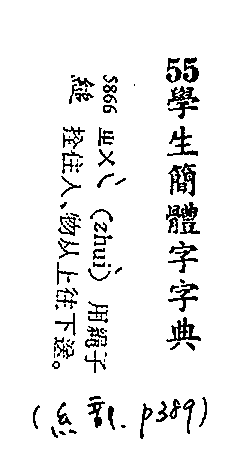 55學生簡體字字典
5866 ㄓㄨㄟˋ (zhuì) 用繩子
縋 拴住人、物从上往下送。
(糸部. p389)